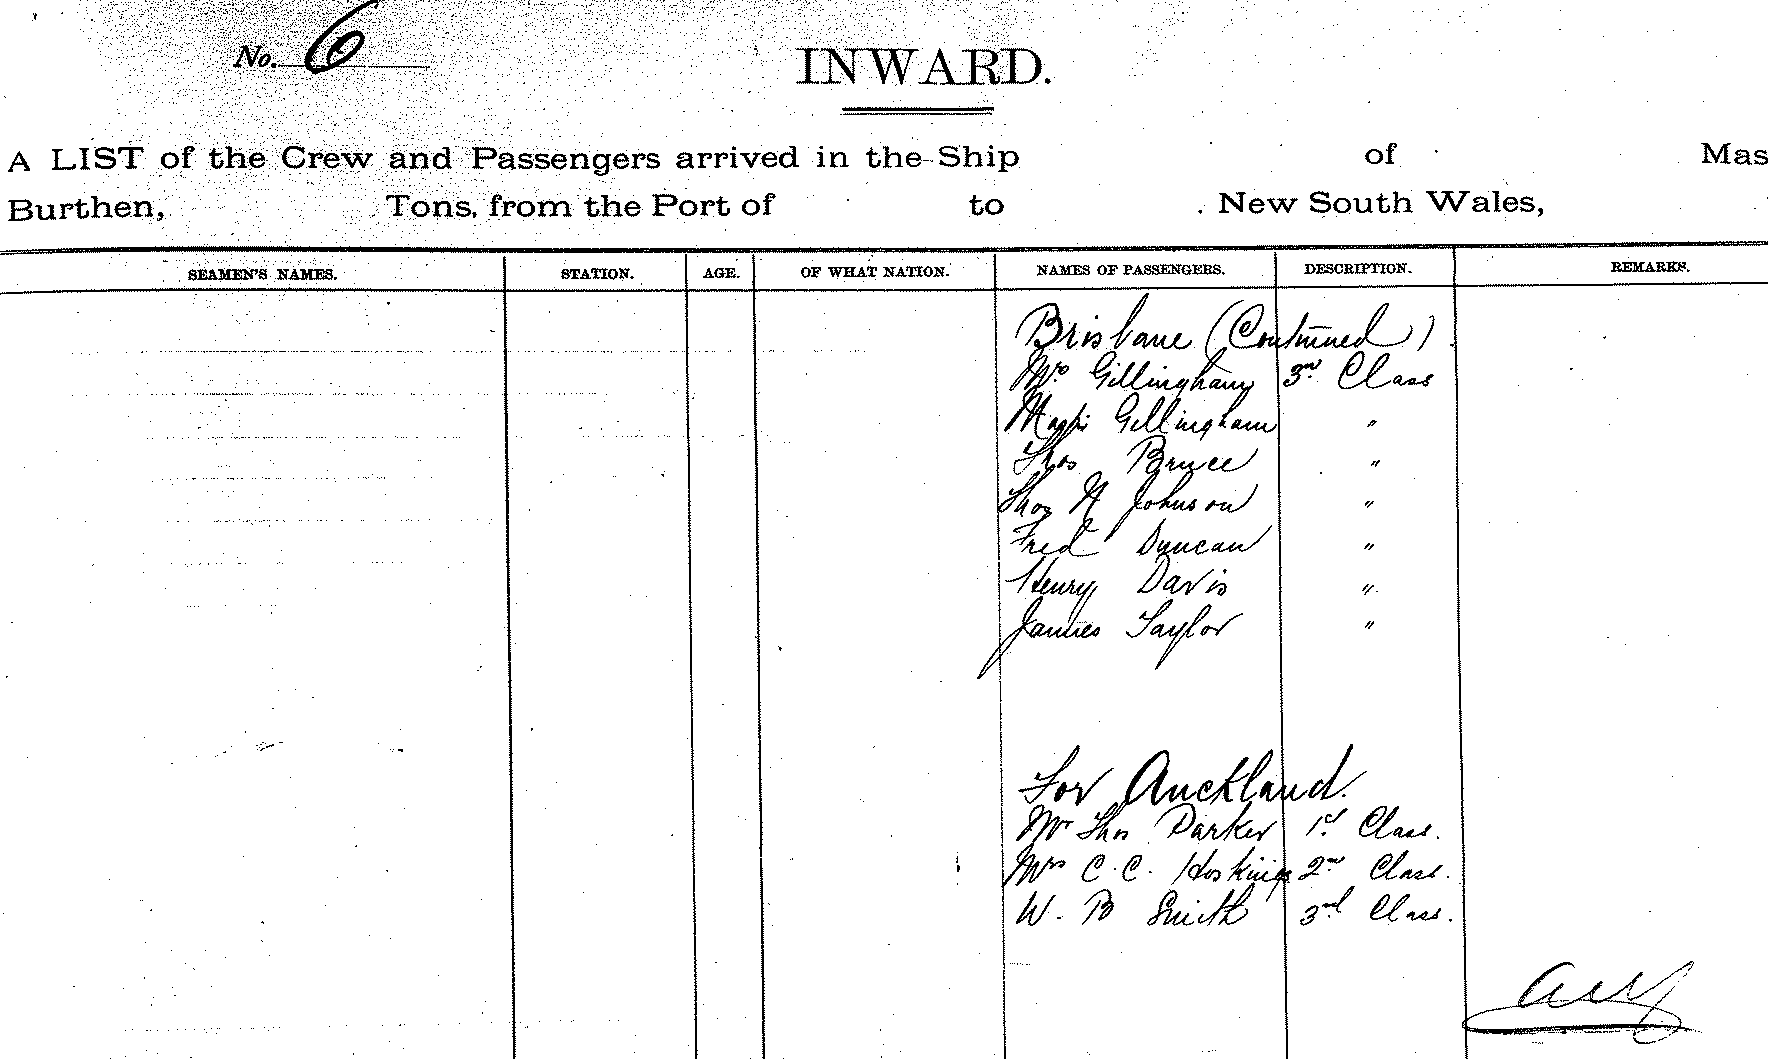 No. 6
INWARD.
A LIST of the Crew and Passengers arrived in the Ship of Mas
Burthen, Tons, from the Port of to New South Wales,
SEAMEN'S NAMES. STATION. AGE. OF WHAT NATION. NAMES OF PASSENGERS. DESCRIPTION. REMARKS.
Brisbane (Continued)
Mrs Gillingham 3rd Class
Gillingham "
Thos Bruce "
Thos H Johnson "
Fred Duncan "
Henry Davis "
James Taylor "
For Auckland.
Mr Thos Parker 1st Class.
Mrs C. C. Hoskings 2nd Class.
W. B Smith 3rd Class.